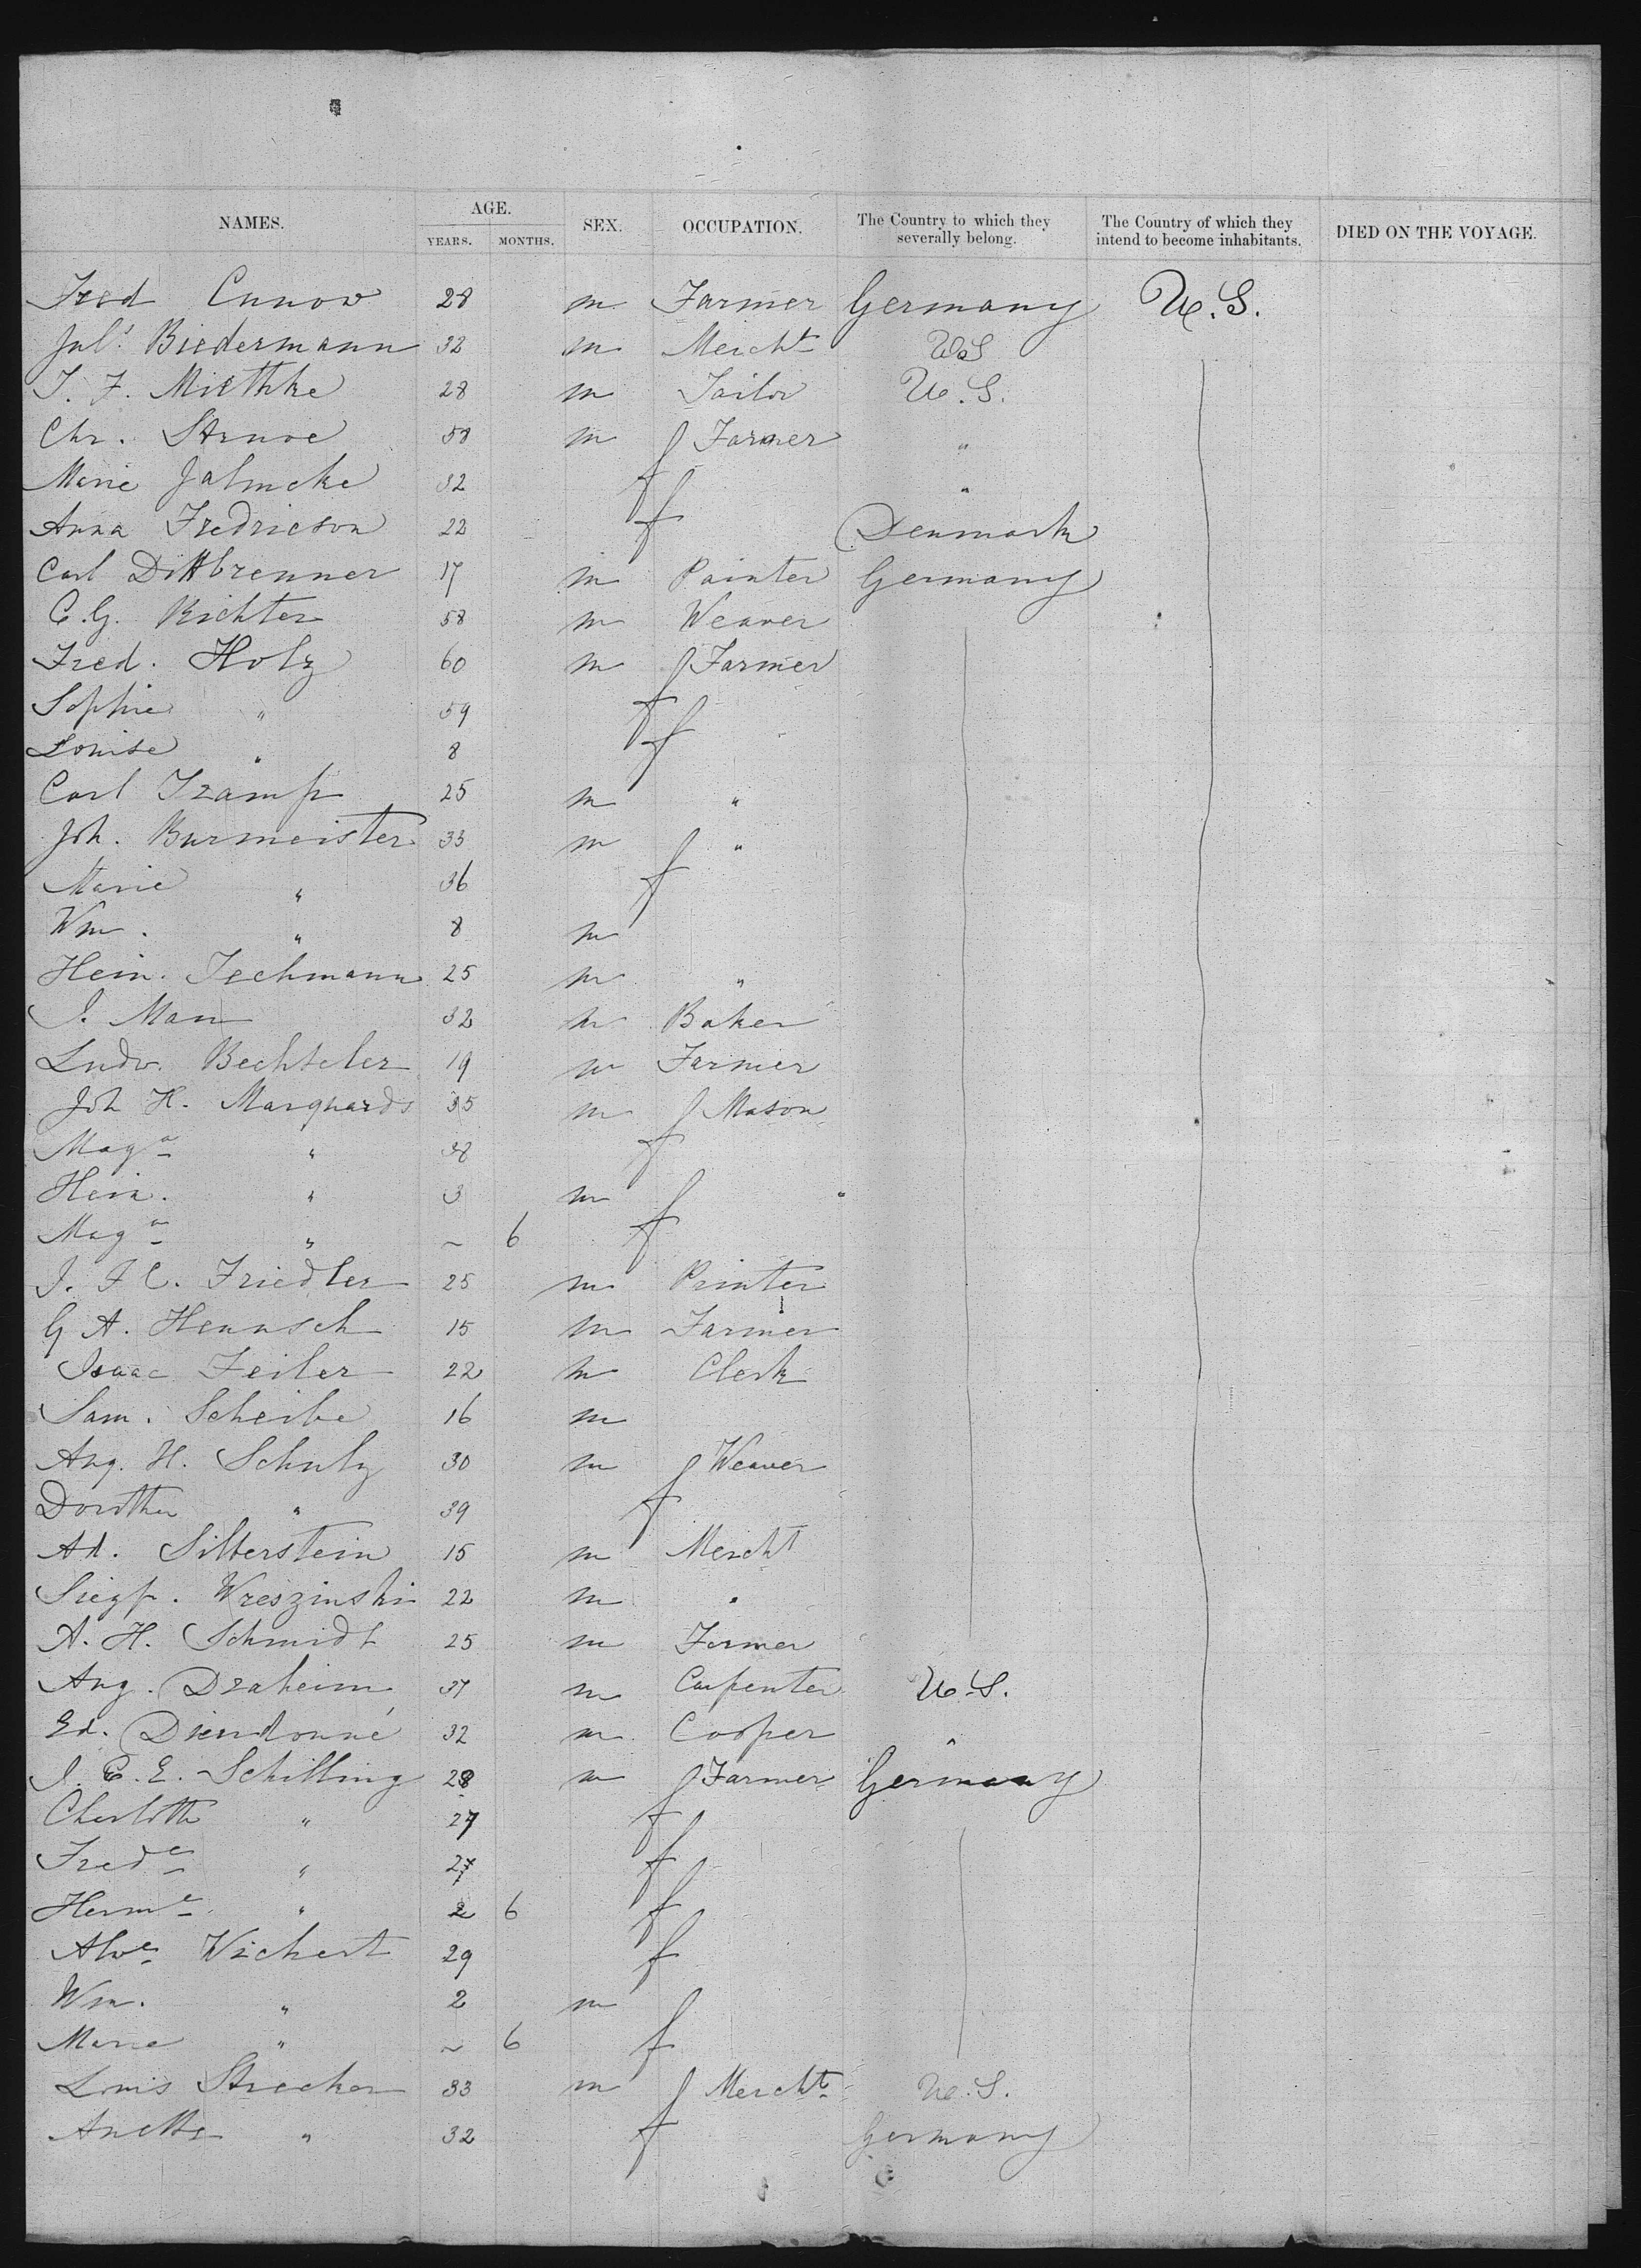 NAMES. AGE. YEARS. MONTHS. SEX. OCCUPATION. The Country to which they severally belong. The Country of which they intend to become inhabitants. DIED ON THE VOYAGE.
Fred Cunow 28 m Farmer Germany U.S.
Juls Biedermann 32 m Mercht U.S
J. F. Miethke 28 m Tailor U.S.
Chr. Struve 58 m Farmer "
Marie Jahncke 32 f "
Anna Fredricson 22 f Denmark
Carl Dittbrenner 17 m Painter Germany
C.G. Richter 58 m Weaver
Fred. Holz 60 m Farmer
Sophie " 59 f
Louise " 8 f
Carl Tramp 25 m "
Joh. Burmeister 33 m "
Marie " 36 f
Wm. " 8 m
Hein. Techmann 25 m "
J. Man 32 m Baker
Ludw. Bechteler 19 m Farmer
Joh H. Marquards 35 m Mason
Maga " 38 f
Hein. " 3 m
Maga " ~ 6 f
J. F C. Friedler 25 m Printer
G A. Hennsch 15 m Farmer
Isaac Feiler 22 m Clerk
Sam. Scheibe 16 m
Aug. H. Schulz 30 m Weaver
Dorothea " 39 f
Ad. Silberstein 15 m Mercht
Siegf. Wreszinski 22 m "
A. H. Schmidt 25 m Farmer
Aug. Draheim 37 m Carpenter U.S.
Ed. Dieudonné 32 m Cooper "
J. C. E. Schilling 28 m Farmer Germany
Charlotte " 27 f
Frede " 27 f
Herme " 2 6 f
Alve Wichert 29 f
Wm. " 2 m
Marie " ~ 6 f
Louis Strecker 33 m Mercht U.S.
Anette " 32 f Germany